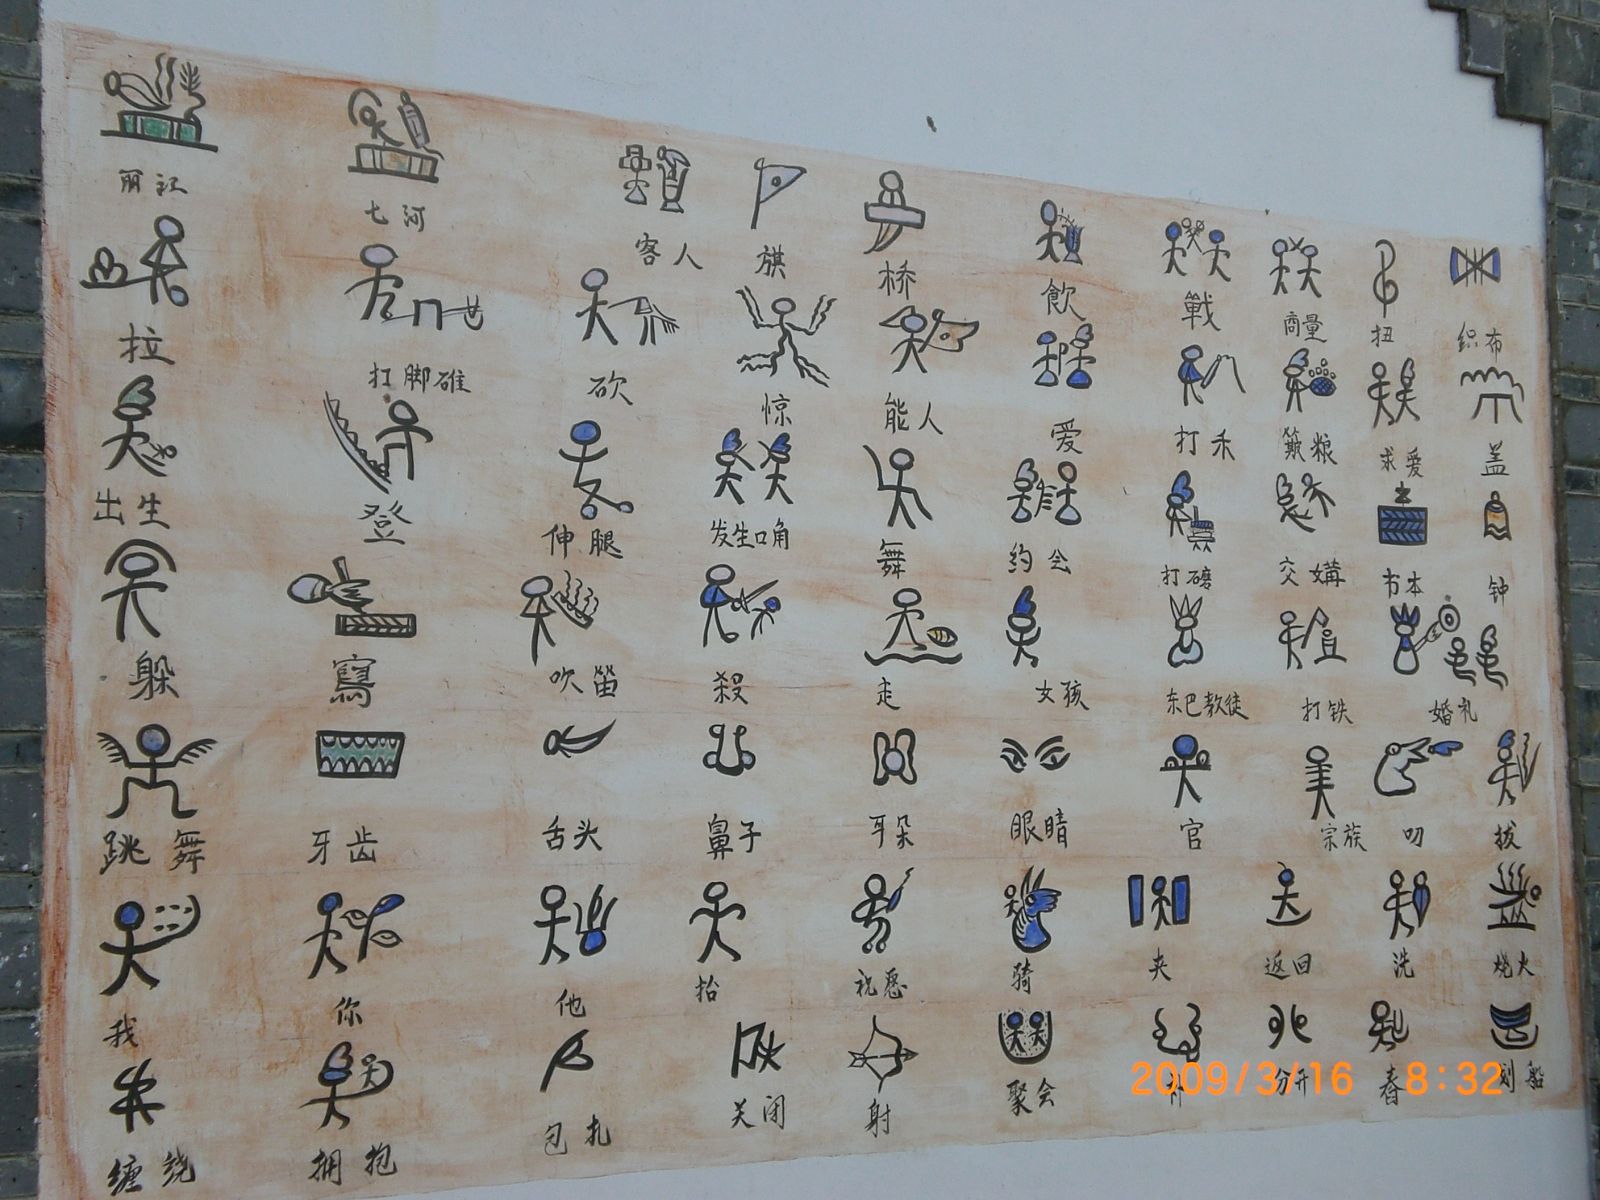 丽江 七河 客人 旗 桥 飲 戰 商量 扭 织布
拉 打脚碓 砍 惊 能人 爱 打禾 簸粮 求爱 盖
出生 登 伸腿 发生口角 舞 约会 打磨 交媾 书本 钟
躲 寫 吹笛 殺 走 女孩 东巴教徒 打铁 婚礼
跳舞 牙齿 舌头 鼻子 耳朵 眼睛 官 宗族 叨 拔
我 你 他 抬 祝愿 骑 夹 返回 洗 烧火
缠绕 拥抱 包扎 关闭 射 聚会 分开 划船
2009/3/16 8:32